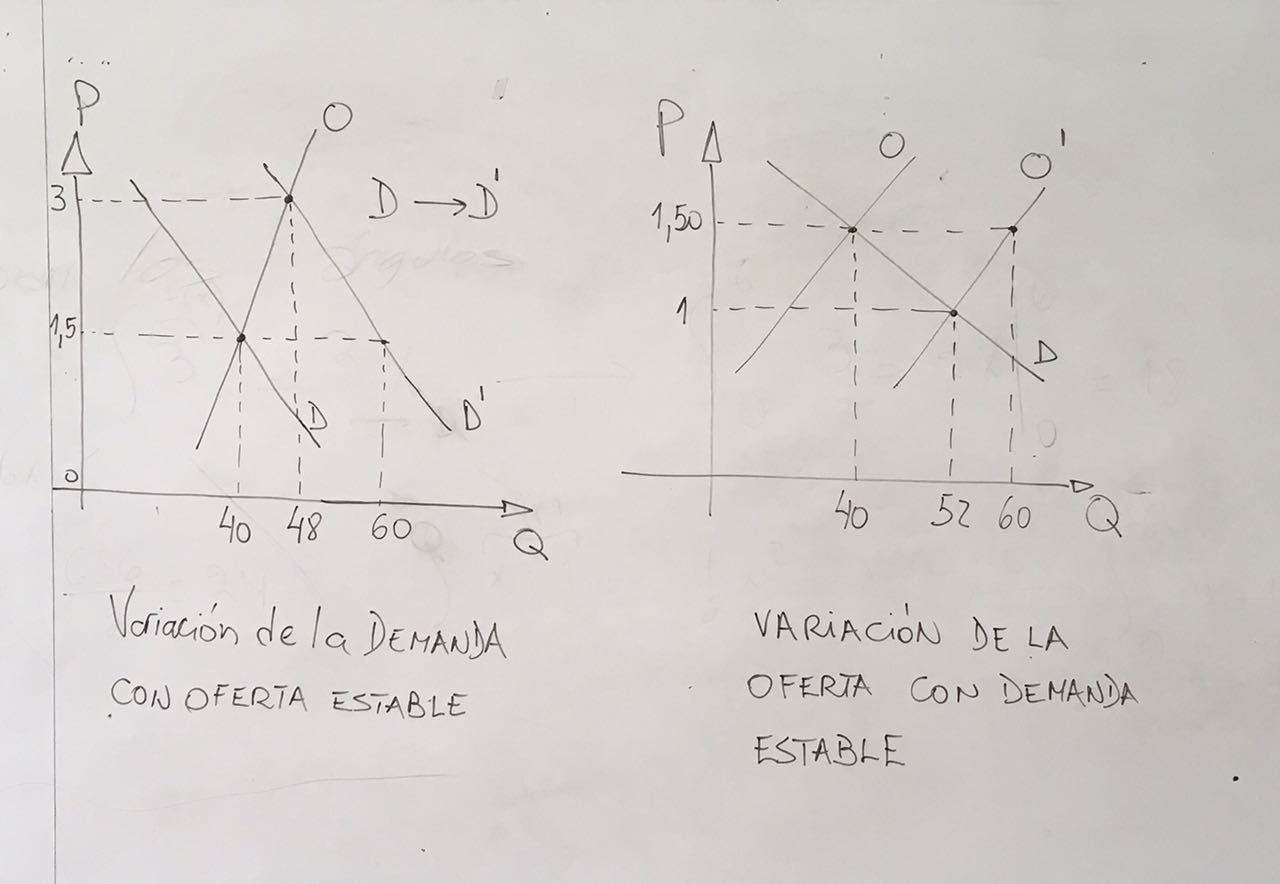 P
O
3
D → D'
1,5
D
D'
0
40 48 60
Q
Variación de la DEMANDA
CON OFERTA ESTABLE
P
O
O'
1,50
1
D
40 52 60
Q
VARIACIÓN DE LA
OFERTA CON DEMANDA
ESTABLE